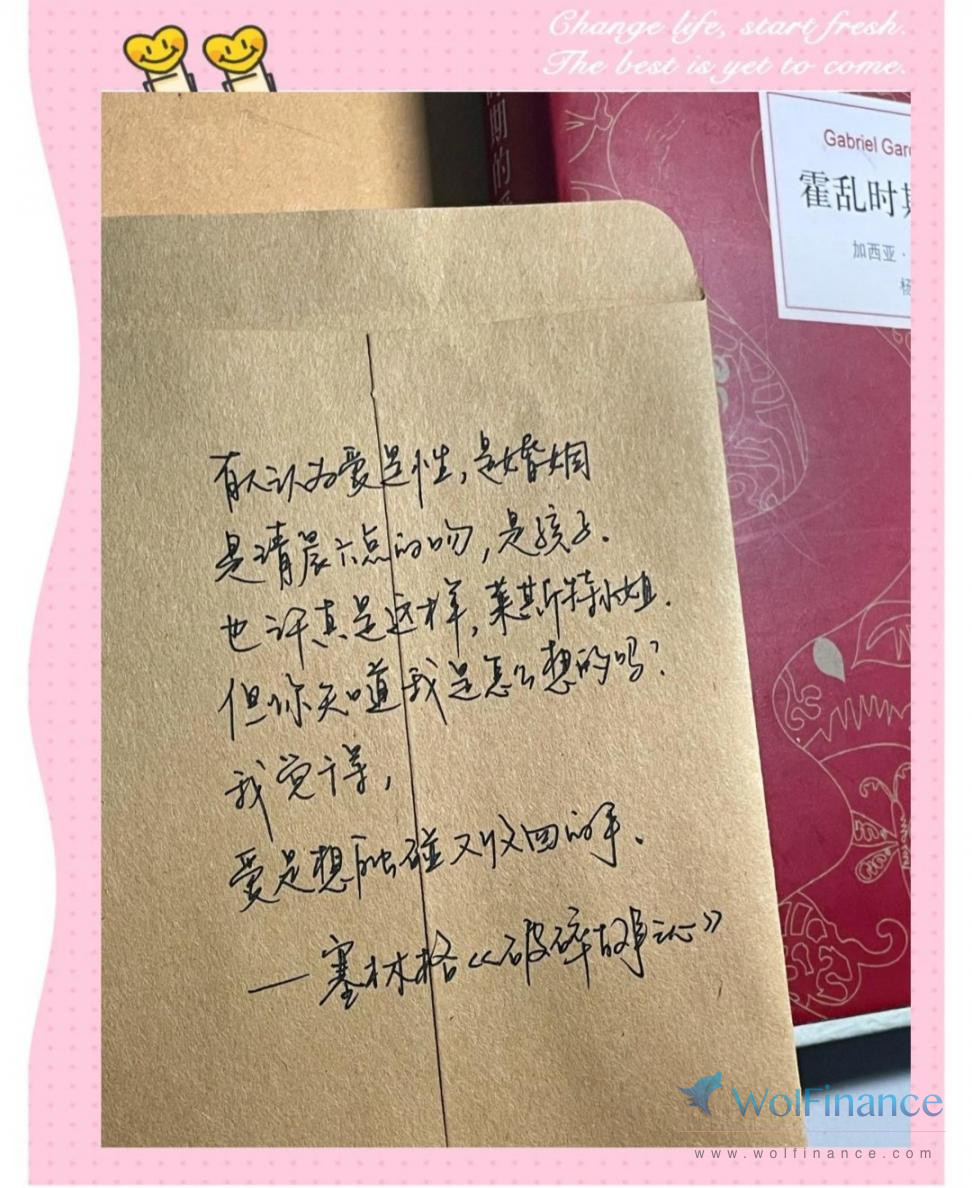 Change life, start fresh.
The best is yet to come.
期的
Gabriel Gar
霍乱时期
加西亚·
杨
有人认为爱是性,是婚姻
是清晨六点的吻,是孩子.
也许真是这样,莱斯特小姐.
但你知道我是怎么想的吗?
我觉得,
爱是想触碰又收回的手.
—塞林格《破碎故事之心》
WolFinance
www.wolfinance.com